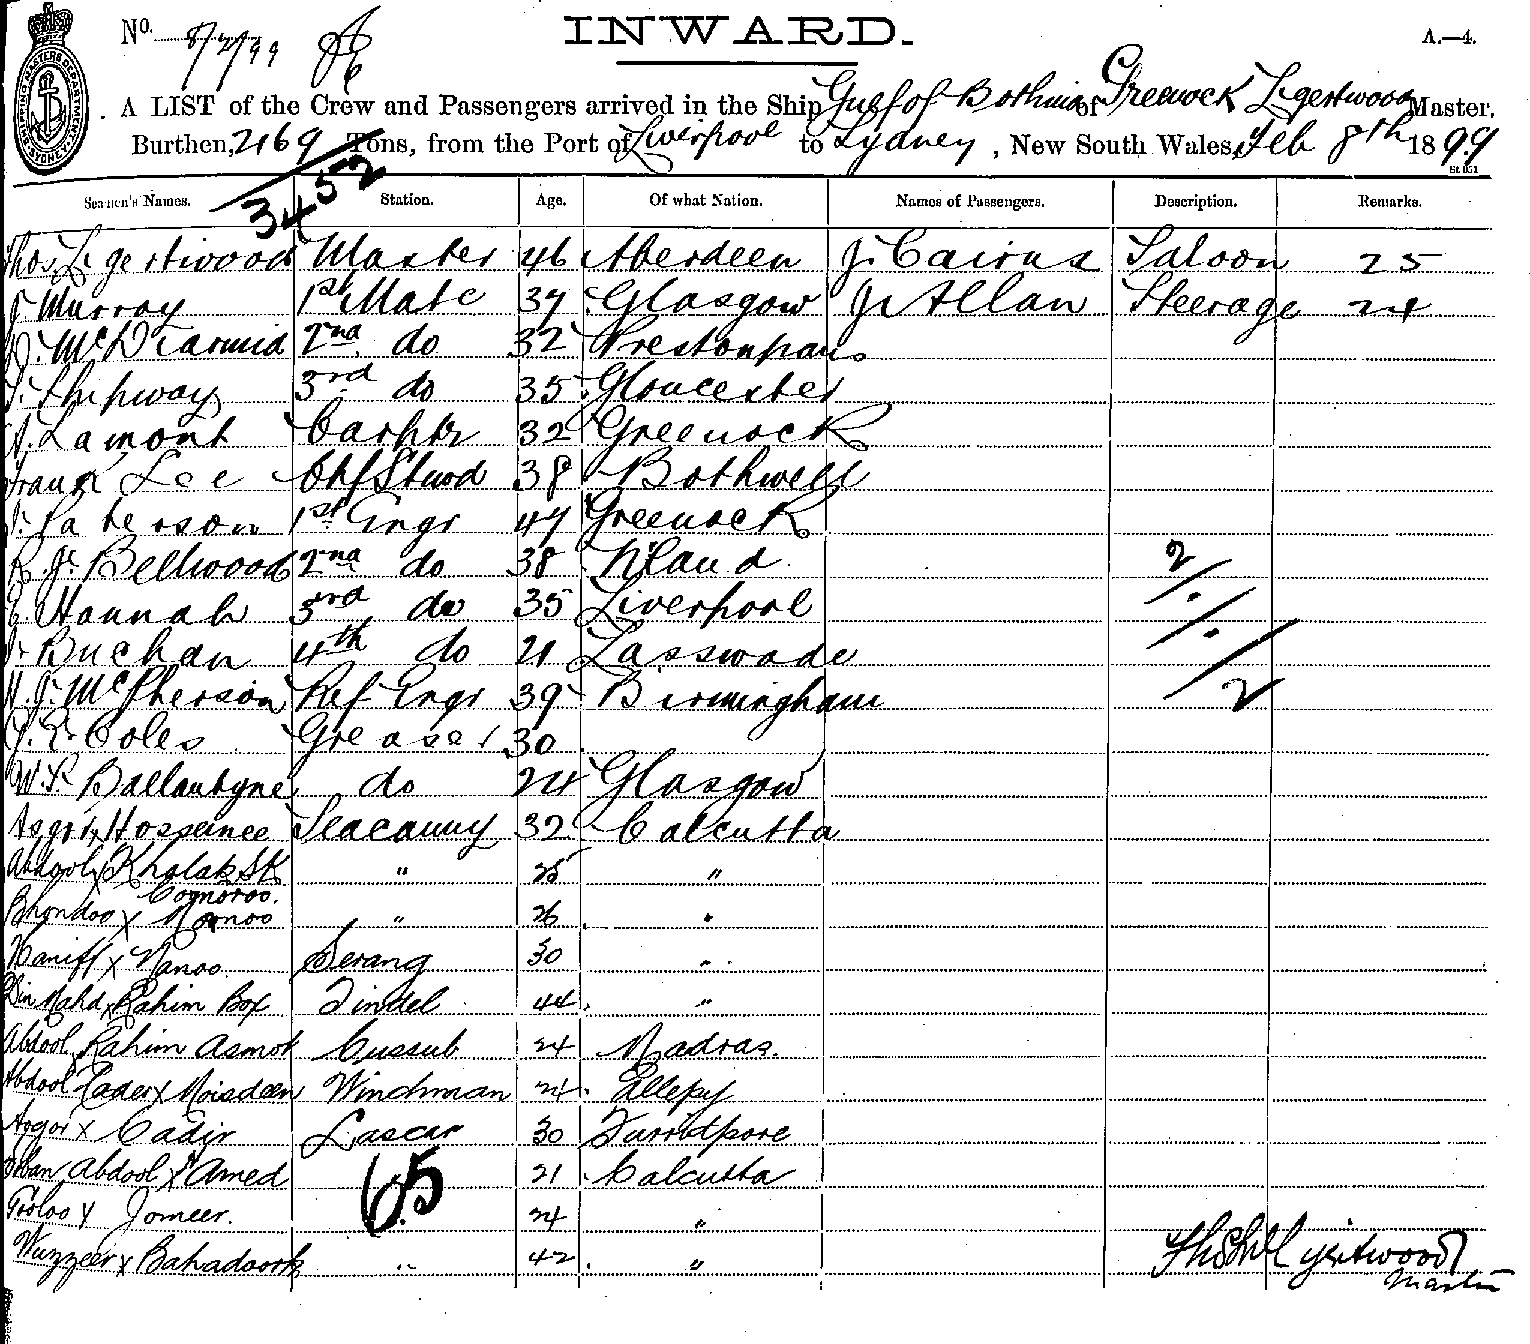 No. 8/2/99
INWARD.
A.—4.
A LIST of the Crew and Passengers arrived in the Ship Gulf of Bothnia of Greenock Lgertwood Master,
Burthen, 2169 Tons, from the Port of Liverpool to Sydney, New South Wales, Feb 8th 1899
3452
Seamen's Names. Station. Age. Of what Nation. Names of Passengers. Description. Remarks.
Thos Lgertwood Master 46 Aberdeen J. Cairns Saloon 25
J. Murray 1st Mate 37 Glasgow J. Allan Steerage 24
D. McDiarmid 2nd do 32 Prestonpans
T. Shipway 3rd do 35 Gloucester
A. Lamont Carptr 32 Greenock
Frank Lee Chf Stwd 38 Bothwell
J. Paterson 1st Engr 47 Greenock
R. J. Bellwood 2nd do 38 2/.
Hannah 3rd do 35 Liverpool /.
J. Buchan 4th do 21 Lasswade /2
H. J. McPherson Ref Engr 39 Birmingham
J. E. Coles Greaser 30
W. S. Ballantyne do 24 Glasgow
Asgor x Hosseinee Seacunny 32 Calcutta
Abdool x Khalak Sk " 25 "
Bhondoo x Cognoroo. Nomoo " 26 "
Haniff x Nanoo. Serang 30 "
Din Mahd x Rahim Box Tindel 44 "
Abdool Rahim Asmot Cussub 24 Madras.
Abdool Cader x Moisdeen Winchman 24 Ellepy
Asgor x Cadir Lascar 30 Furridpore
Abdool x Amed 21 Calcutta
65
Jomeer. 24 "
Wuzzeer x Bahadoork " 42 "
Master